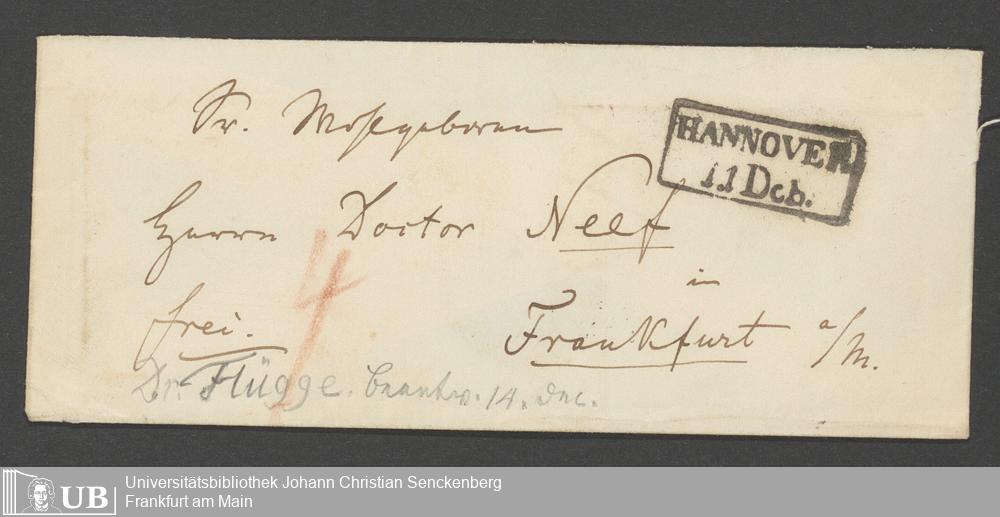 Sr. Wohlgeboren
HANNOVER
11 Dcb.
Herrn Doctor Neef
in
frei.
4
Frankfurt a/M.
Dr. Flügge. beantw. 14. Dec.
UB
Universitätsbibliothek Johann Christian Senckenberg
Frankfurt am Main